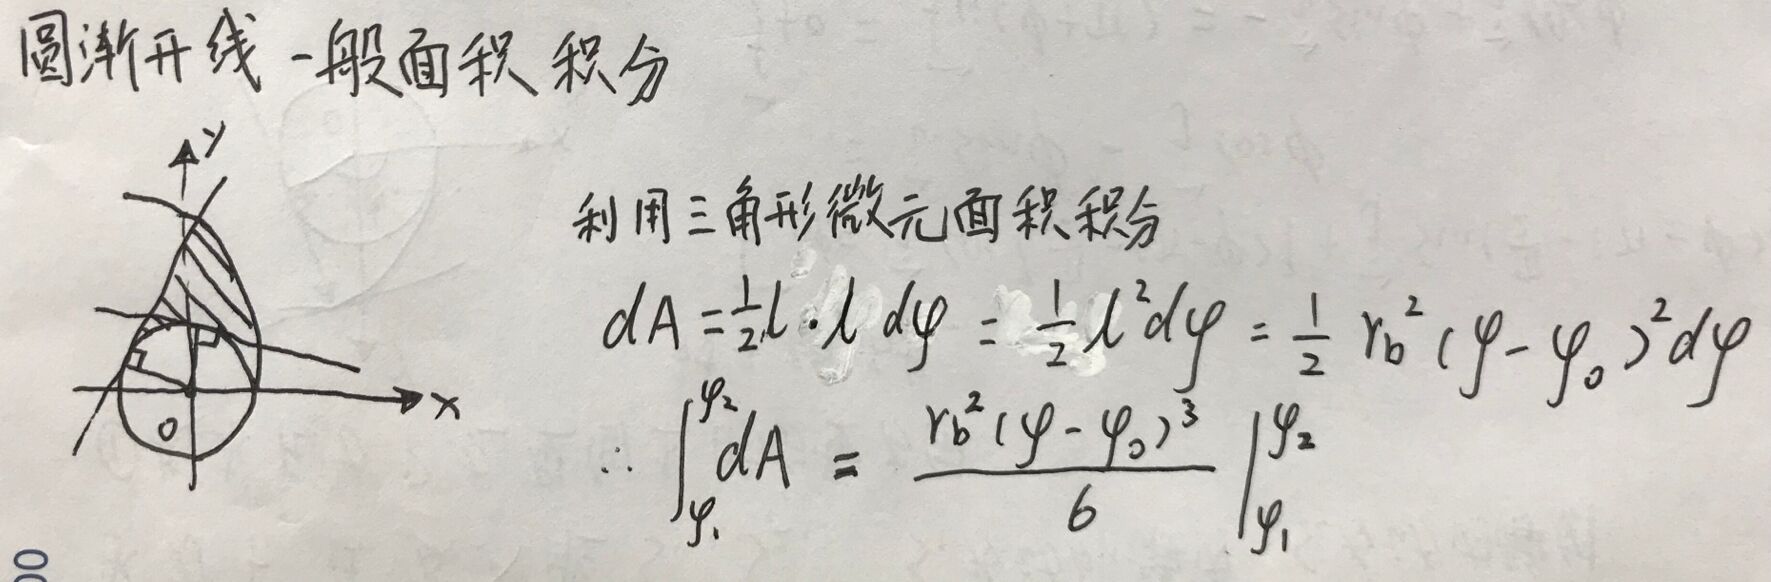 圆渐开线一般面积积分
y
利用三角形微元面积积分
dA = 1/2 l · l dφ = 1/2 l² dφ = 1/2 r_b² (φ - φ₀)² dφ
x
O
∴ ∫_{φ₁}^{φ₂} dA = r_b² (φ - φ₀)³ / 6 |_{φ₁}^{φ₂}
00